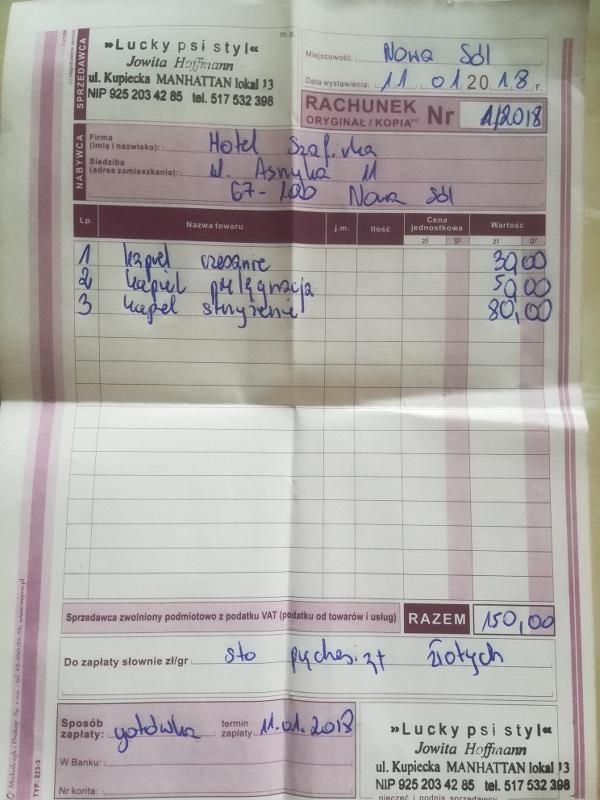 m.p.
SPRZEDAWCA
»Lucky psi styl«
Jowita Hoffmann
ul. Kupiecka MANHATTAN lokal 13
NIP 925 203 42 85 tel. 517 532 398
Miejscowość: Nowa Sól
Data wystawienia: 11 01 2018 r.
RACHUNEK Nr 1/2018
ORYGINAŁ / KOPIA
NABYWCA
Firma
(imię i nazwisko): Hotel Szafirka
Siedziba
(adres zamieszkania): ul. Asnyka 11
67-100 Nowa Sól
Lp. Nazwa towaru j.m. Ilość Cena jednostkowa Wartość
zł gr zł gr
1 kąpiel czesanie 30,00
2 kąpiel pielęgnacja 50,00
3 kąpiel strzyżenie 80,00
Sprzedawca zwolniony podmiotowo z podatku VAT (podatku od towarów i usług) RAZEM 150,00
Do zapłaty słownie zł/gr sto pięćdziesiąt złotych
Sposób zapłaty: gotówka termin zapłaty 11.01.2018
W Banku:
Nr konta:
»Lucky psi styl«
Jowita Hoffmann
ul. Kupiecka MANHATTAN lokal 13
NIP 925 203 42 85 tel. 517 532 398
pieczęć i podpis sprzedawcy
TYP: 223-3